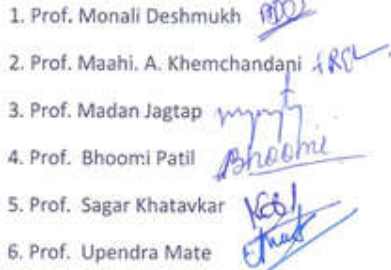 1. Prof. Monali Deshmukh
2. Prof. Maahi. A. Khemchandani
3. Prof. Madan Jagtap
4. Prof. Bhoomi Patil Bhoomi
5. Prof. Sagar Khatavkar
6. Prof. Upendra Mate